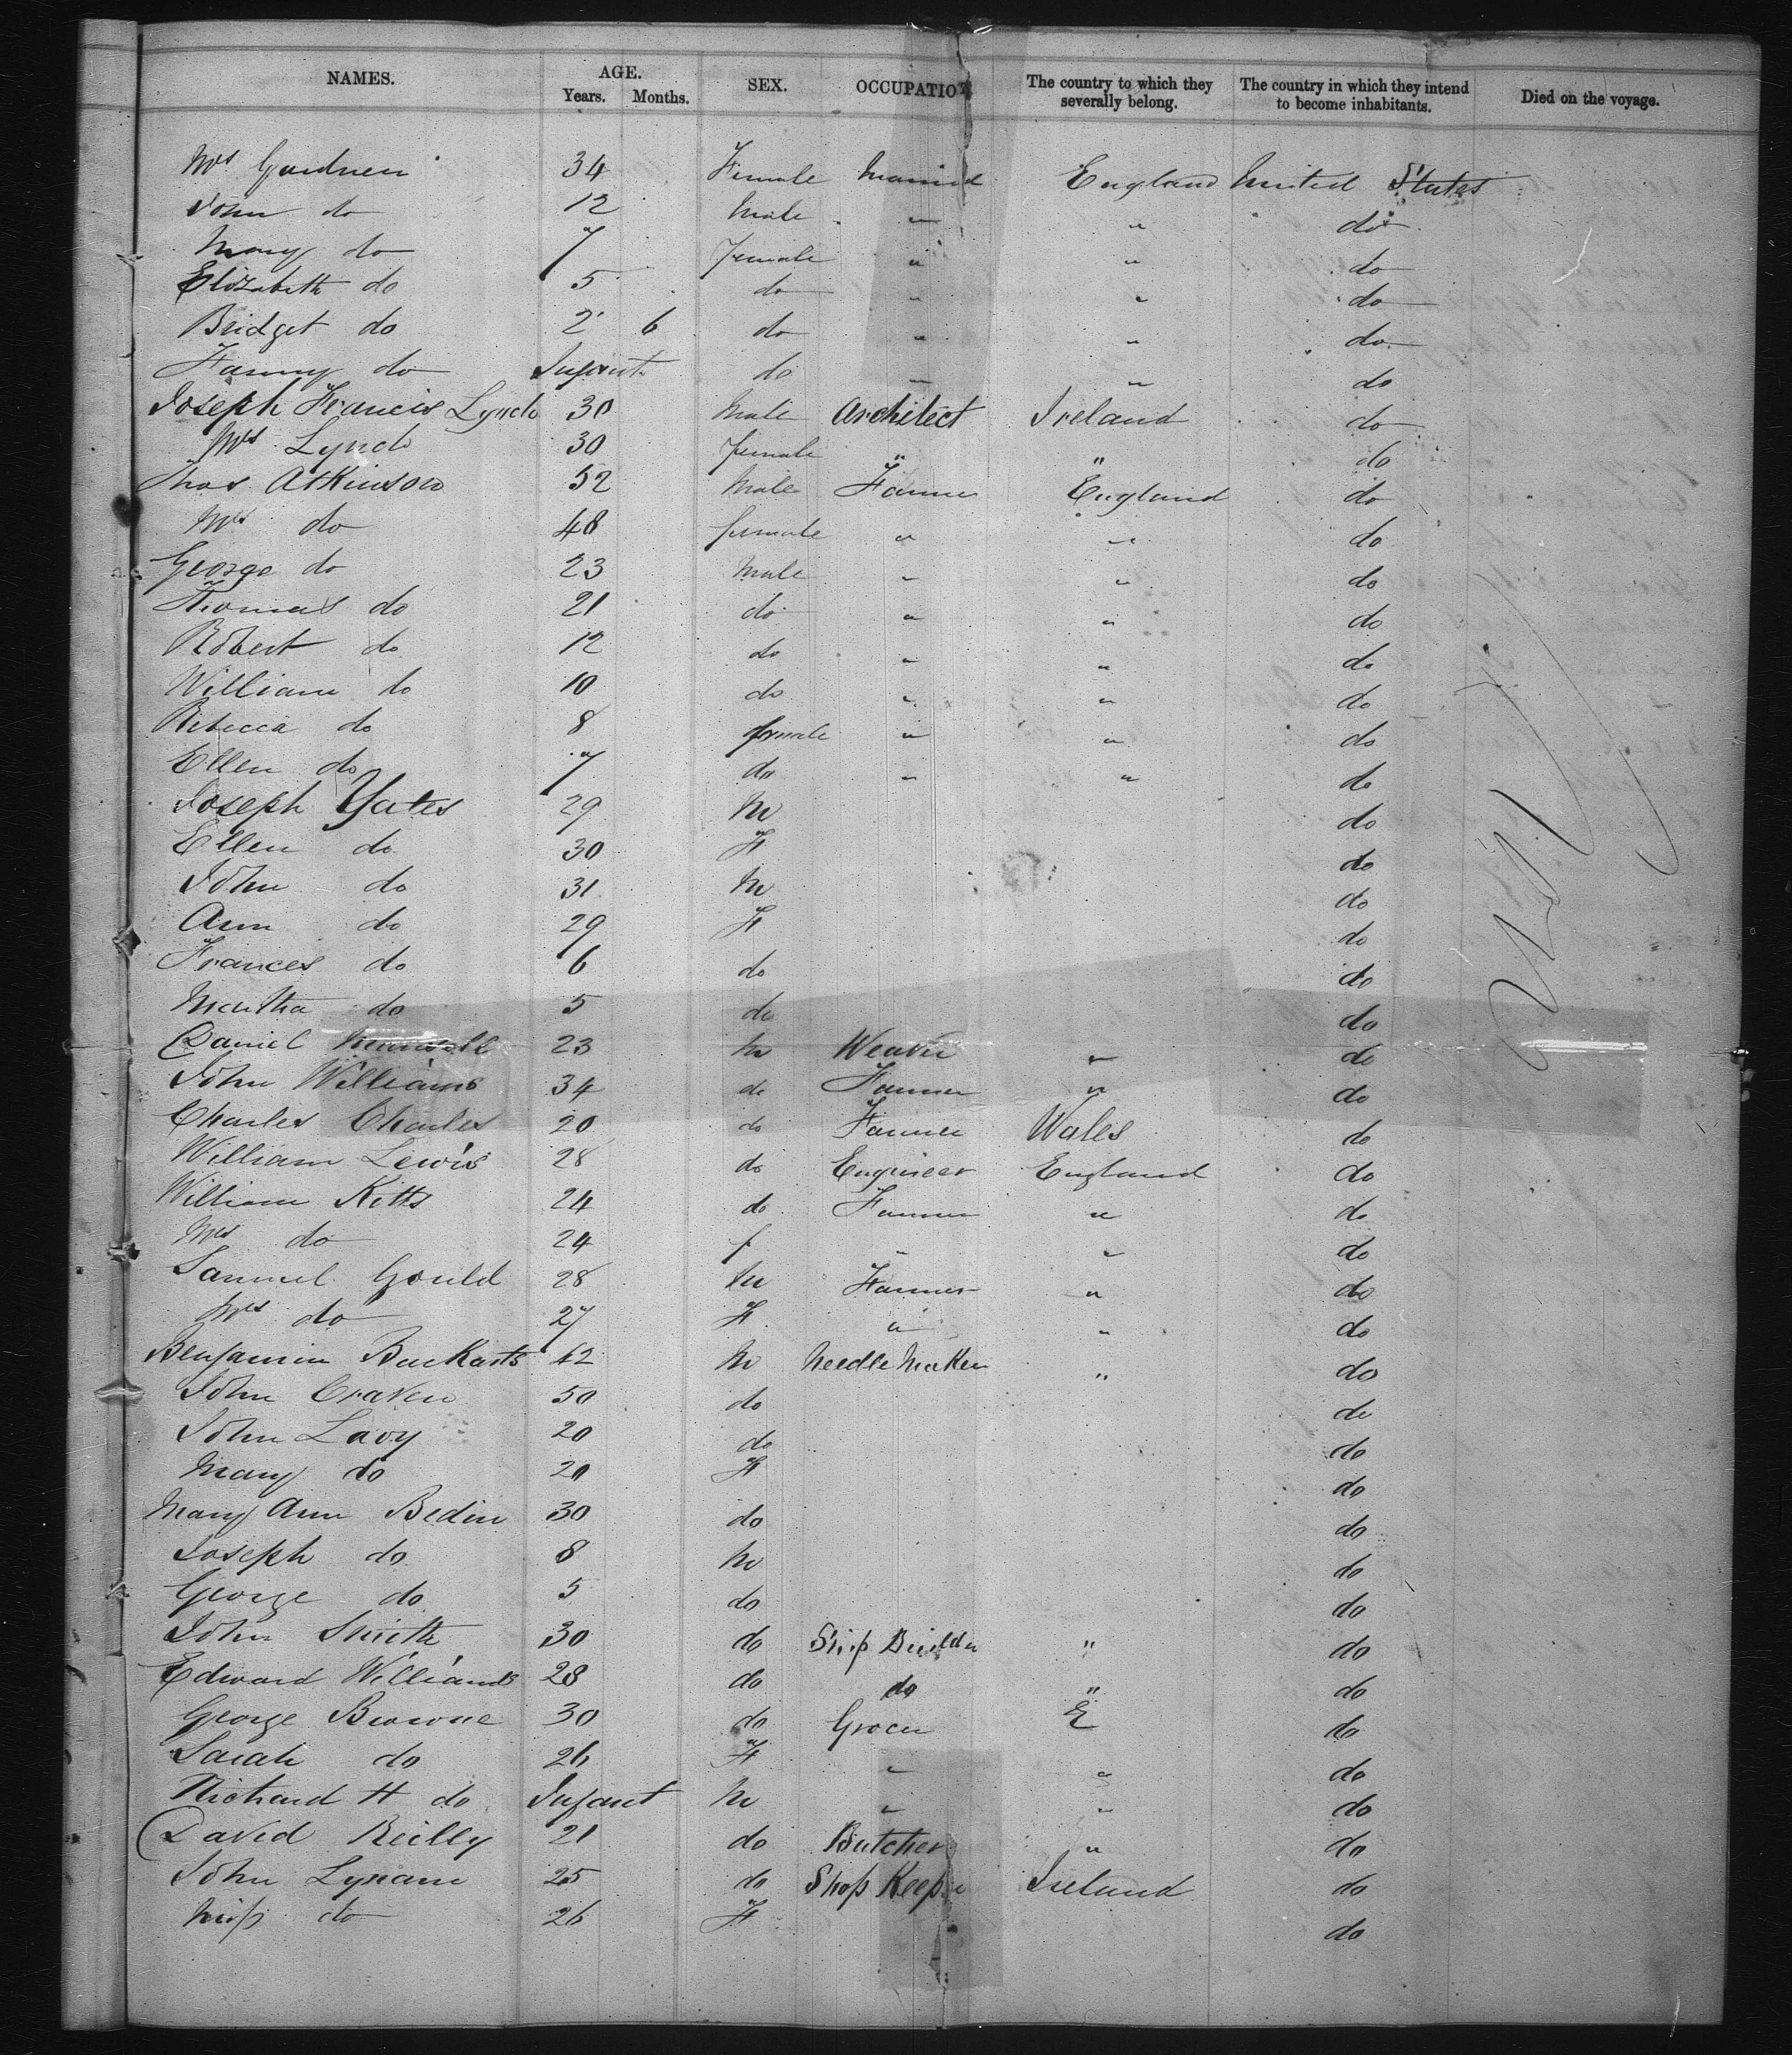 NAMES. AGE. Years. Months. SEX. OCCUPATION The country to which they severally belong. The country in which they intend to become inhabitants. Died on the voyage.
Mrs Gardner 34 Female Married England United States
John do 12 Male " " do
Mary do 7 Female " " do
Elizabeth do 5 do " " do
Bridget do 2 6 do " " do
Fanny do Infant do " " do
Joseph Francis Lynch 30 Male Architect Ireland do
Mrs Lynch 30 female " " do
Thos Atkinson 52 Male Farmer England do
Mrs do 48 female " " do
George do 23 Male " " do
Thomas do 21 do " " do
Robert do 12 do " " do
William do 10 do " " do
Rebecca do 8 female " " do
Ellen do 7 do " " do
Joseph Yates 29 M do
Ellen do 30 F do
John do 31 M do
Ann do 29 F do
Frances do 6 do do
Martha do 5 do do
Daniel 23 M Weaver " do
John Williams 34 do Farmer " do
Charles Charles 20 do Farmer Wales do
William Lewis 28 do Engineer England do
William Kitts 24 do Farmer " do
Mrs do 24 f " " do
Samuel Gould 28 M Farmer " do
Mrs do 27 F " " do
Benjamin 42 M Needle Maker " do
John Craven 50 do do
John Lavy 20 do do
Mary do 20 F do
Mary Ann Bedin 30 do do
Joseph do 8 M do
George do 5 do do
John Smith 30 do Ship Builder " do
Edward Williams 28 do do " do
George Browne 30 do Grocer E do
Sarah do 26 F " " do
Richard H do Infant M " " do
David Reilly 21 do Butcher " do
John Lynam 25 do Shop Keeper Ireland do
Miss do 26 F do